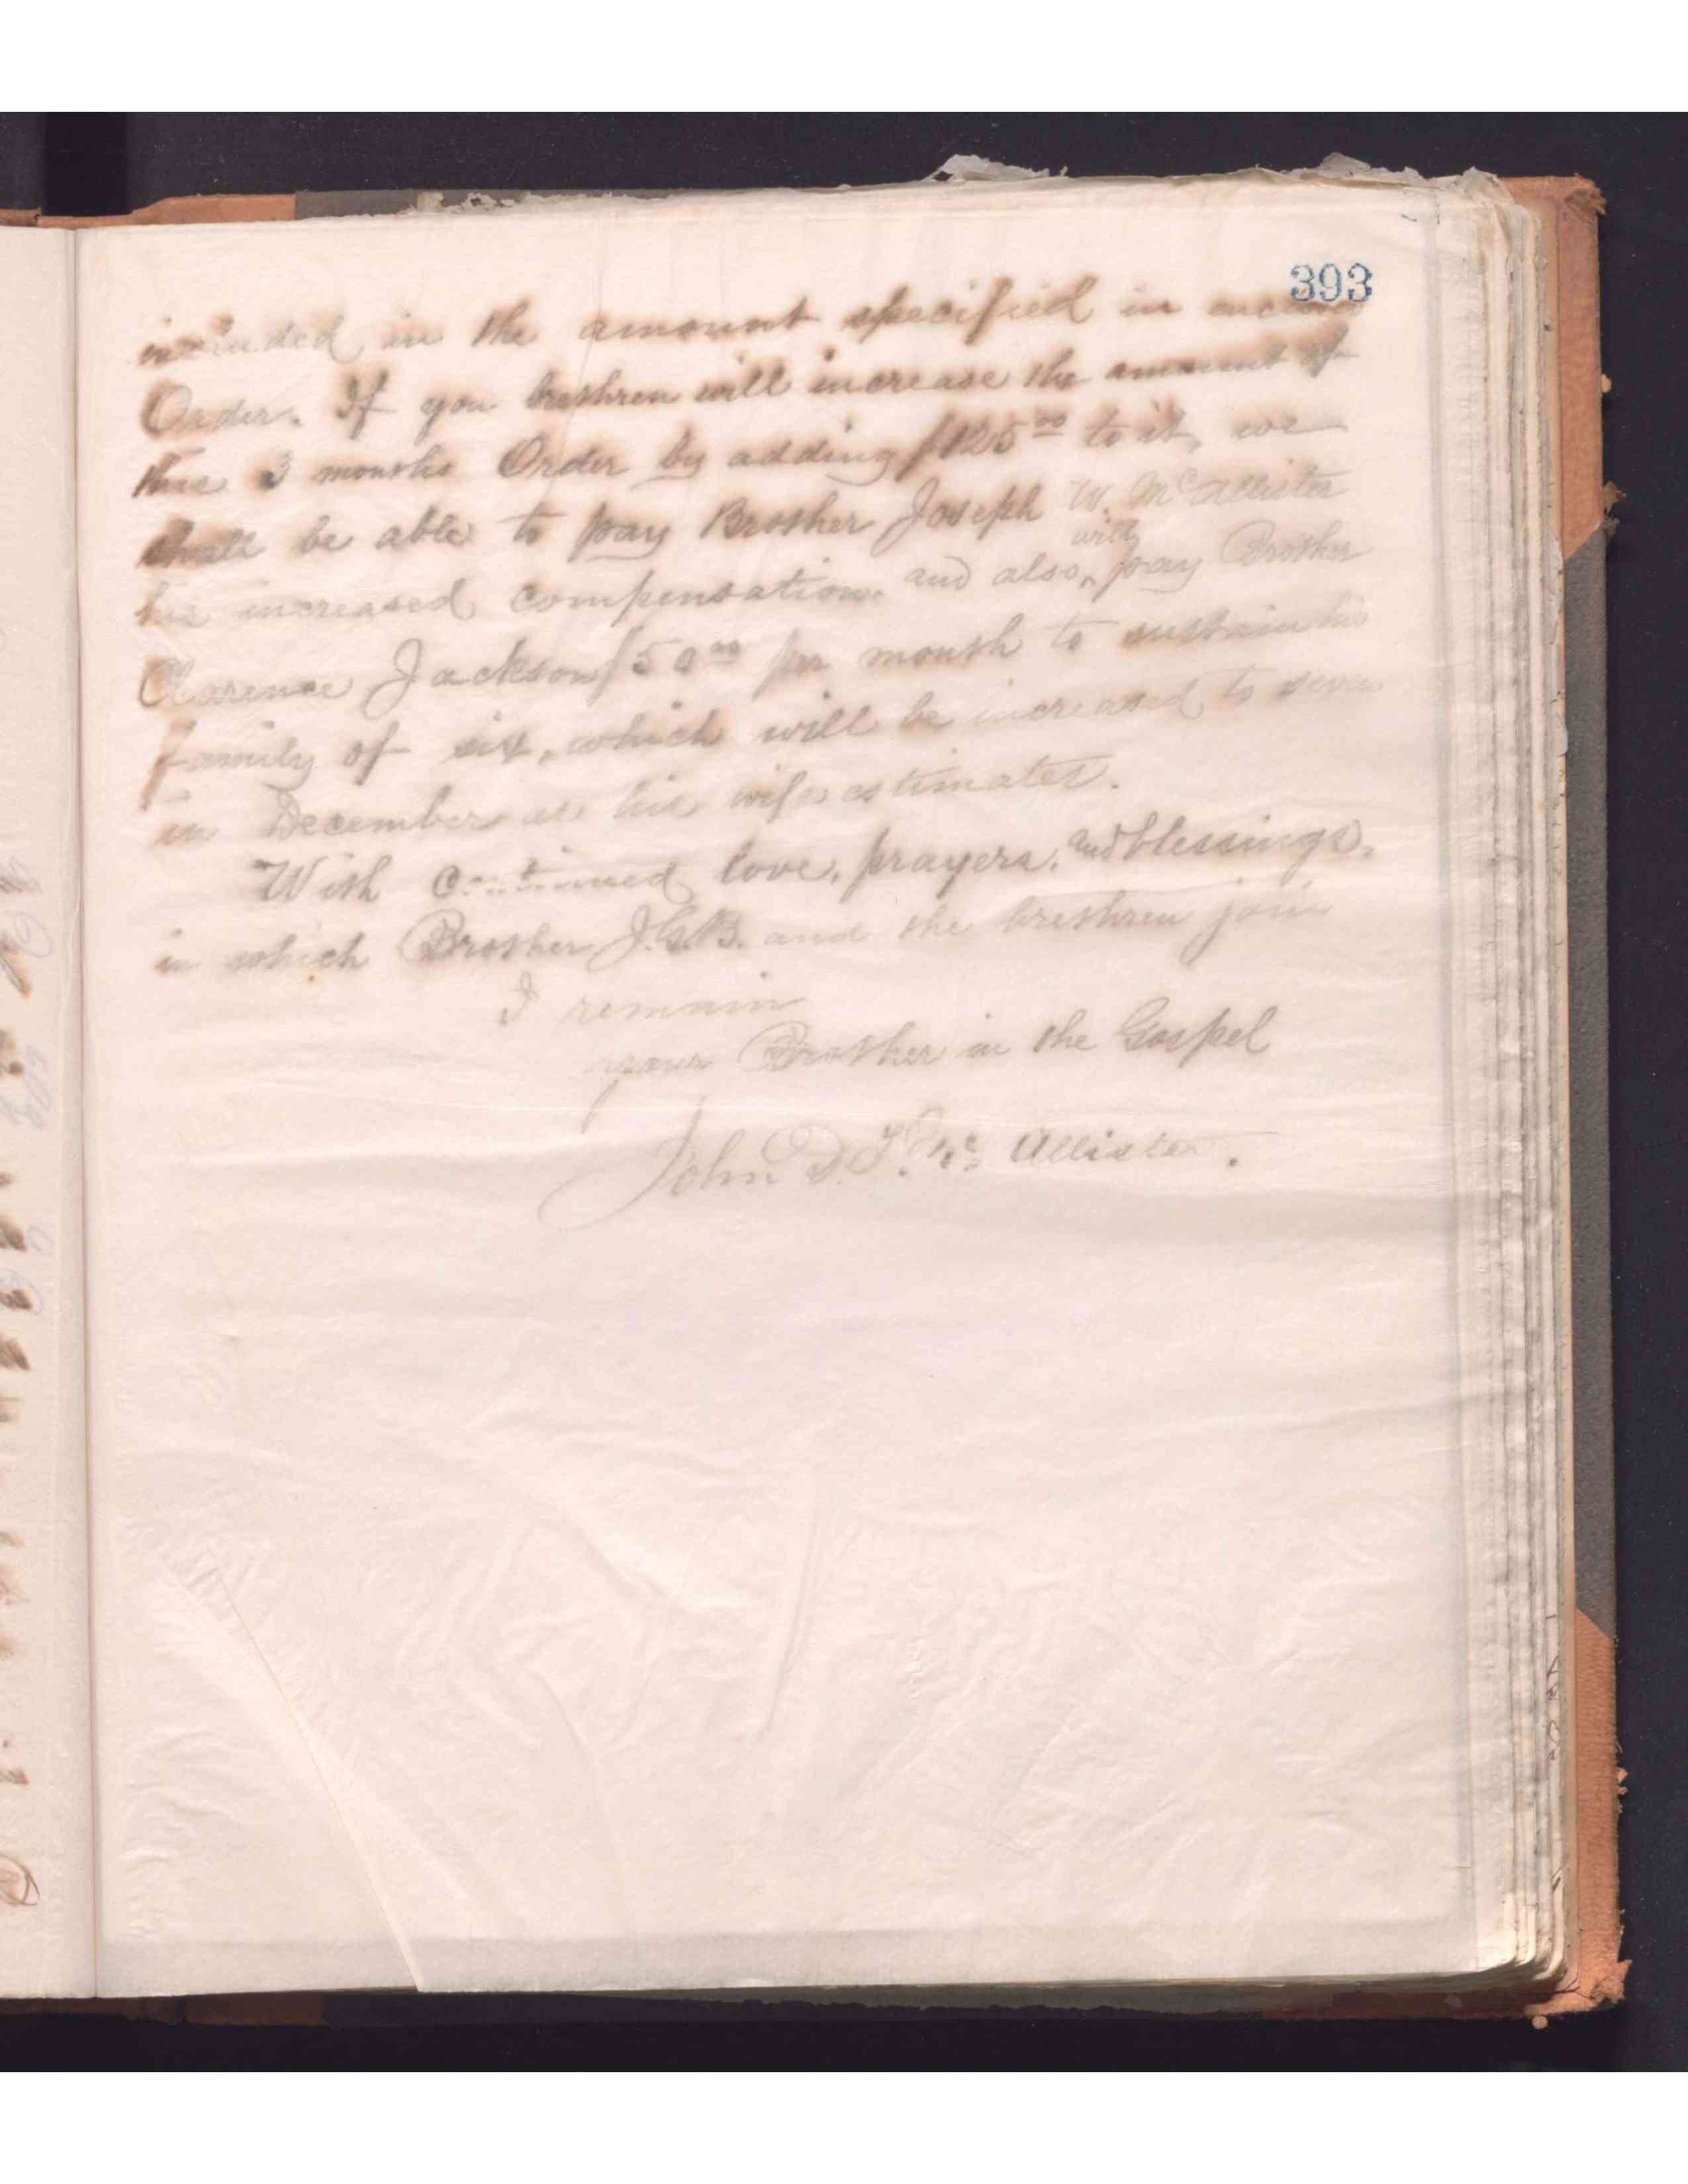 393
included in the amount specified in
Order. If you brethren will increase the amount of
this 3 months Order by adding $125 00 to it, we
shall be able to pay Brother Joseph W. McAllister
his increased compensation. and also, with pay Brother
Clarence Jackson $50 00 per month to sustain his
family of six, which will be increased to seven
in December as his wife estimates.
With continued love, prayers, and blessings,
in which Brother J.G.B. and the brethren join
I remain
your Brother in the Gospel
John D. T. McAllister.